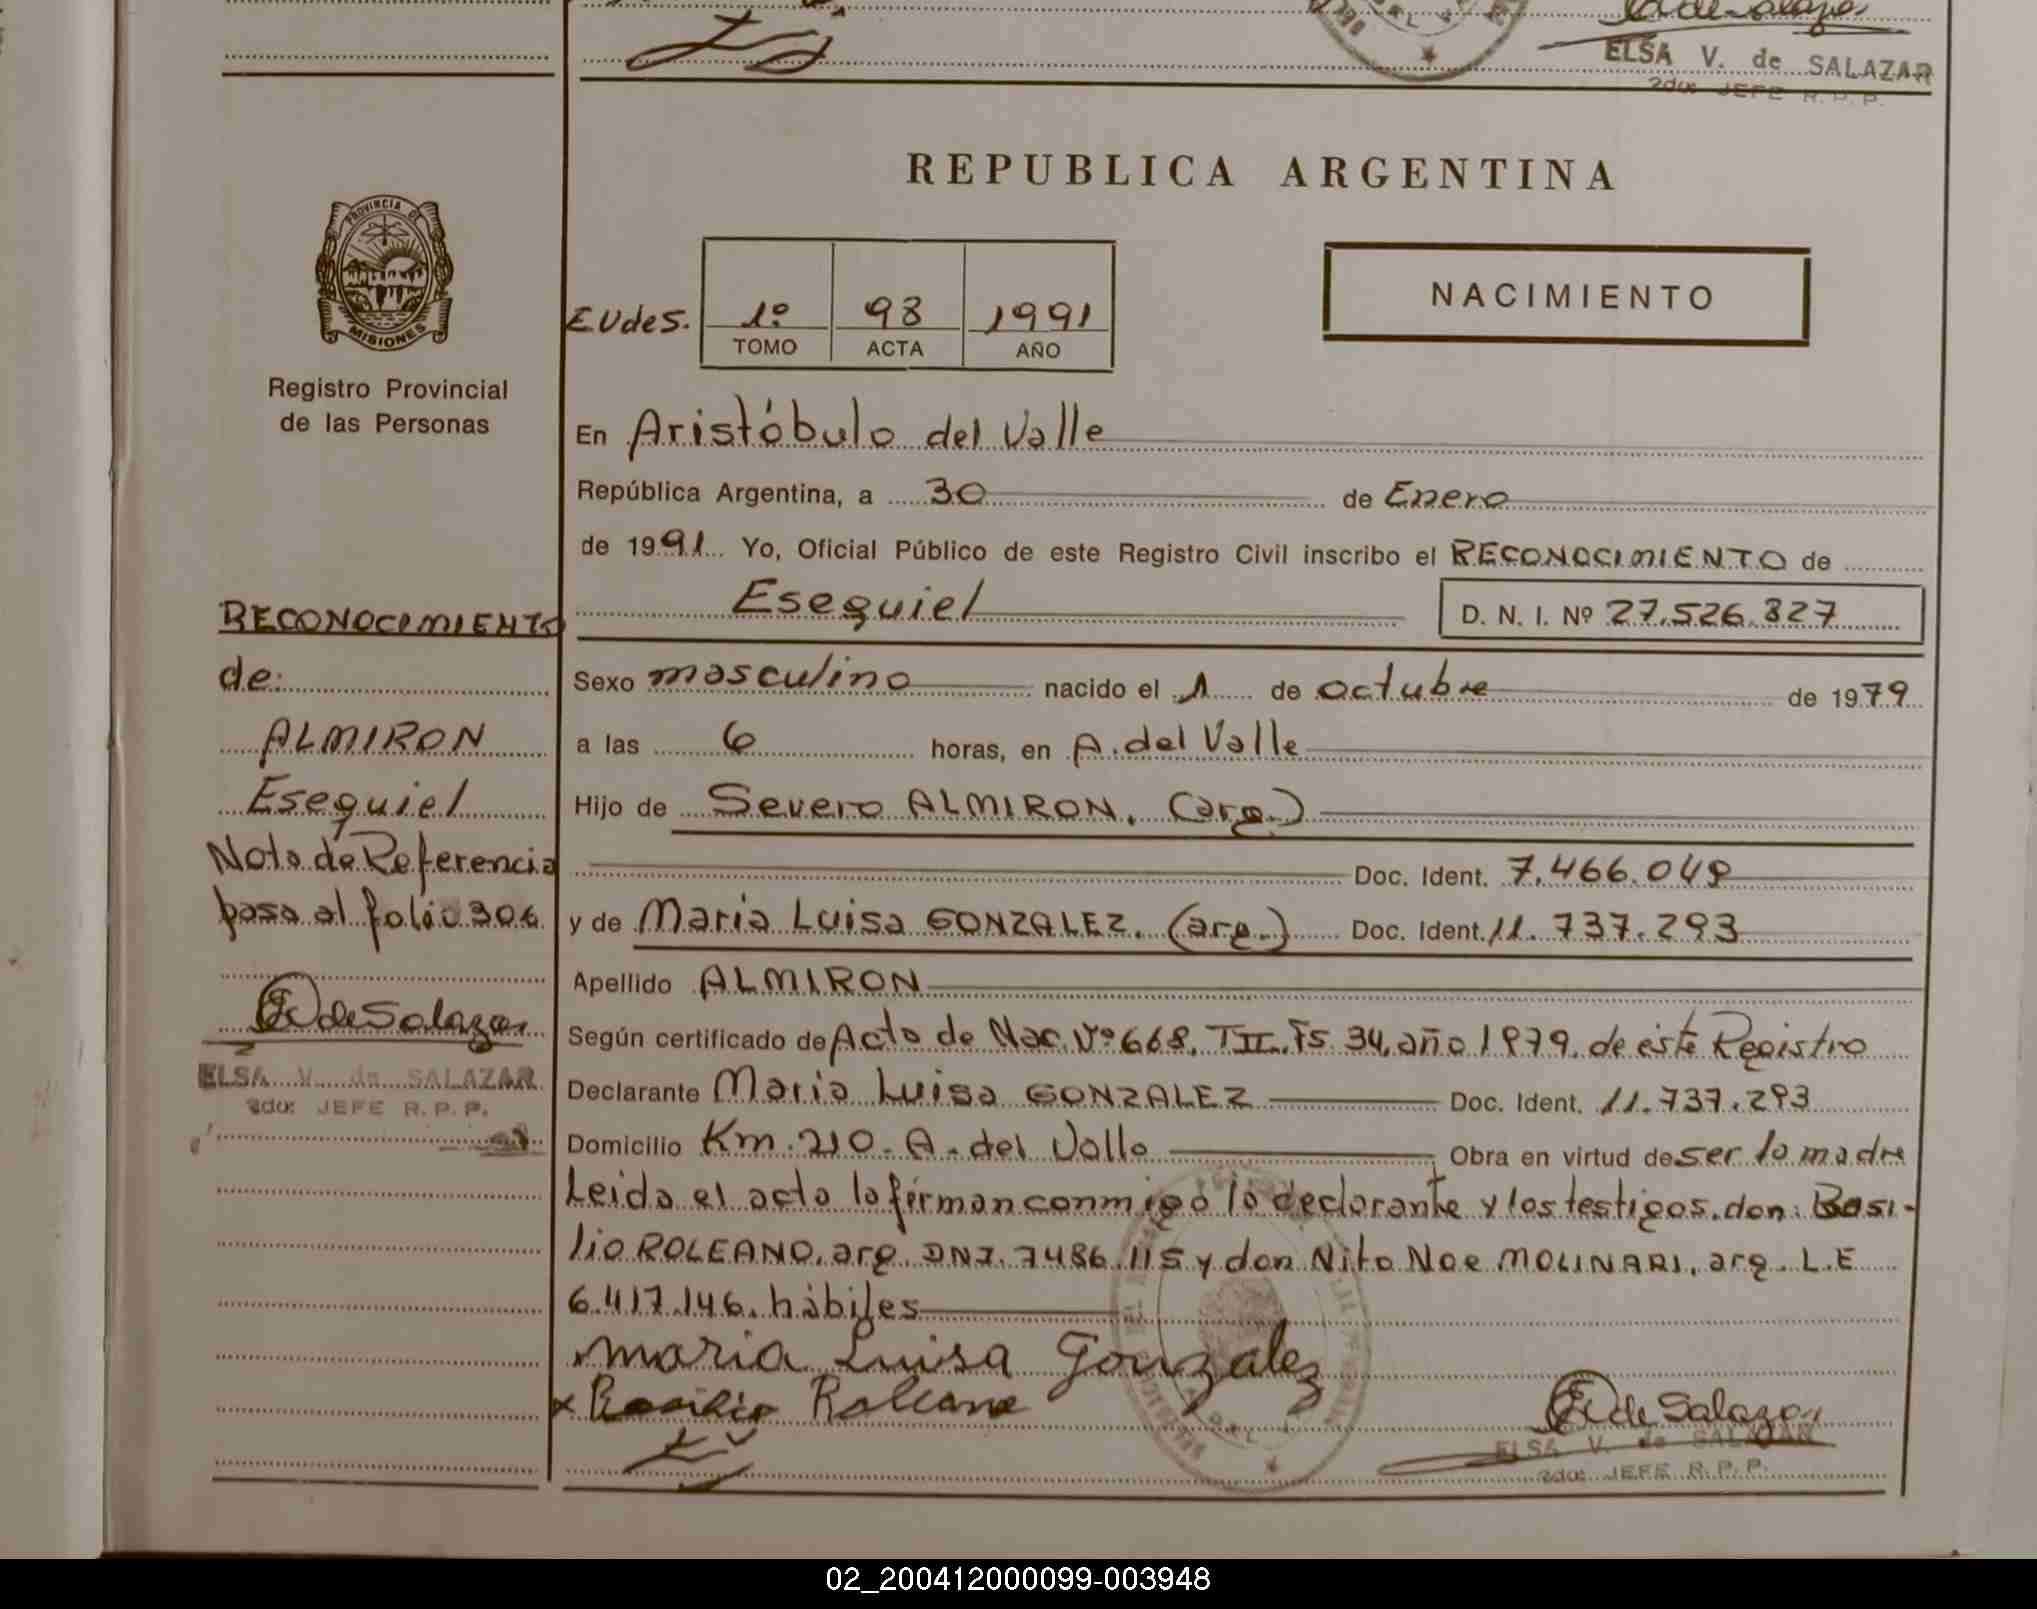 ELSA V. de SALAZAR
2do: JEFE R. P. P.
REPUBLICA ARGENTINA
PROVINCIA DE
MISIONES
Registro Provincial
de las Personas
NACIMIENTO
EUdeS. 1º 98 1991
TOMO ACTA AÑO
En Aristóbulo del Valle
República Argentina, a 30 de Enero
de 1991 Yo, Oficial Público de este Registro Civil inscribo el RECONOCIMIENTO de
Esequiel D. N. I. Nº 27.526.327
RECONOCIMIENTO
de:
ALMIRON
Esequiel
Nota de Referencia
pasa al folio 306
E V de Salazar
ELSA V. de SALAZAR
2do: JEFE R. P. P.
Sexo masculino nacido el 1 de octubre de 1979
a las 6 horas, en A. del Valle
Hijo de Severo ALMIRON. (arg.)
Doc. Ident. 7.466.049
y de Maria Luisa GONZALEZ. (arg.) Doc. Ident. 11.737.293
Apellido ALMIRON
Según certificado de Acta de Nac. Nº 668. T II. Fs 34, año 1979. de este Registro
Declarante Maria Luisa GONZALEZ Doc. Ident. 11.737.293
Domicilio Km. 210. A. del Valle Obra en virtud de ser la madre
Leida el acta la firman conmigo la declarante y los testigos. don: Basi-
lio ROLEANO. arg. DNI. 7486.115 y don Nito Noe MOLINARI. arg. L.E
6.417.146. hábiles
maria Luisa Gonzalez
x Basilio Roleano
E V de Salazar
ELSA V. de SALAZAR
2do: JEFE R. P. P.
02_200412000099-003948